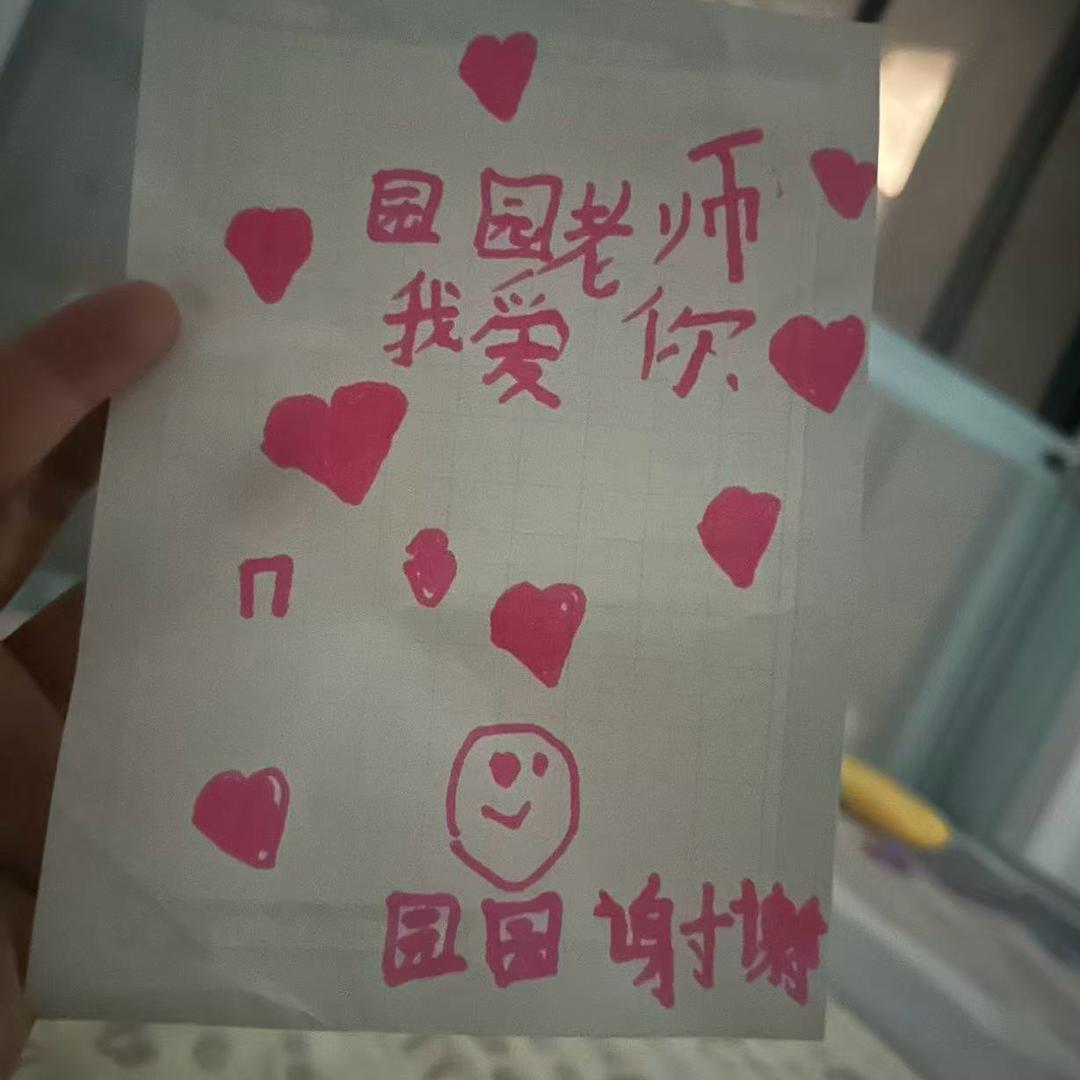 园园老师
我爱你
园园谢谢